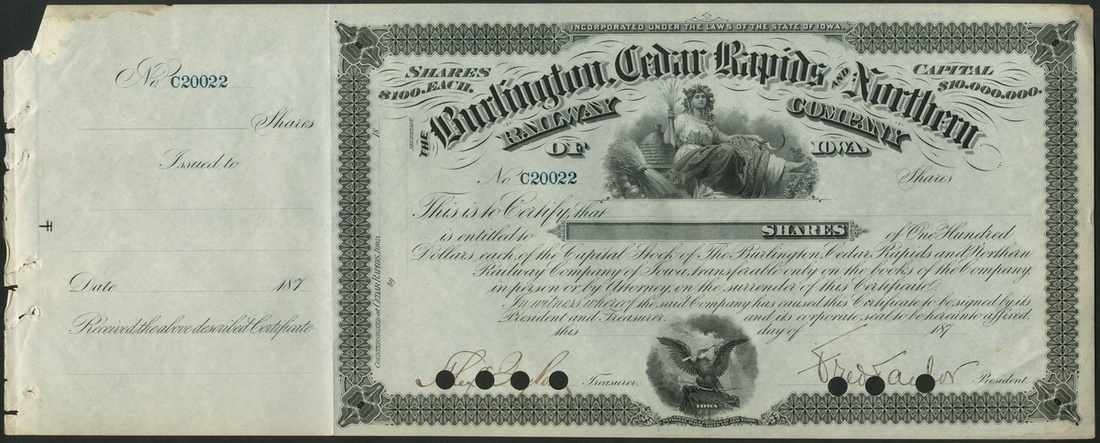 No. C20022
Shares
Issued to
Date 187
Received the above described Certificate
INCORPORATED UNDER THE LAWS OF THE STATE OF IOWA.
SHARES $100. EACH.
CAPITAL $10.000.000.
THE Burlington, Cedar Rapids AND Northern
RAILWAY COMPANY
OF IOWA
No. C20022 Shares
This is to Certify, that
is entitled to SHARES of One Hundred
Dollars each of the Capital Stock of The Burlington, Cedar Rapids and Northern
Railway Company of Iowa, transferable only on the books of the Company,
in person or by Attorney, on the surrender of this Certificate.
In witness whereof the said Company has caused this Certificate to be signed by its
President and Treasurer and its corporate seal to be hereinto affixed
this day of 187
Treasurer. Fred Taylor President.
IOWA
COUNTERSIGNED at CEDAR RAPIDS, IOWA.
by
18
SECRETARY.